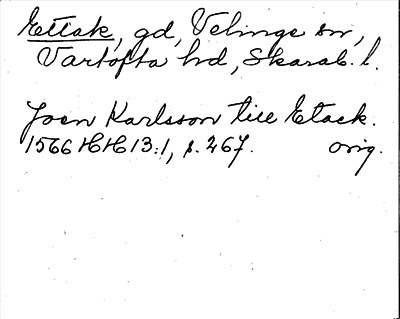 Ettak, gd, Velinge sn,
Vartofta hd, Skarab. l.
Joen Karlsson till Etack.
1566 HH 13:1, s. 267. orig.